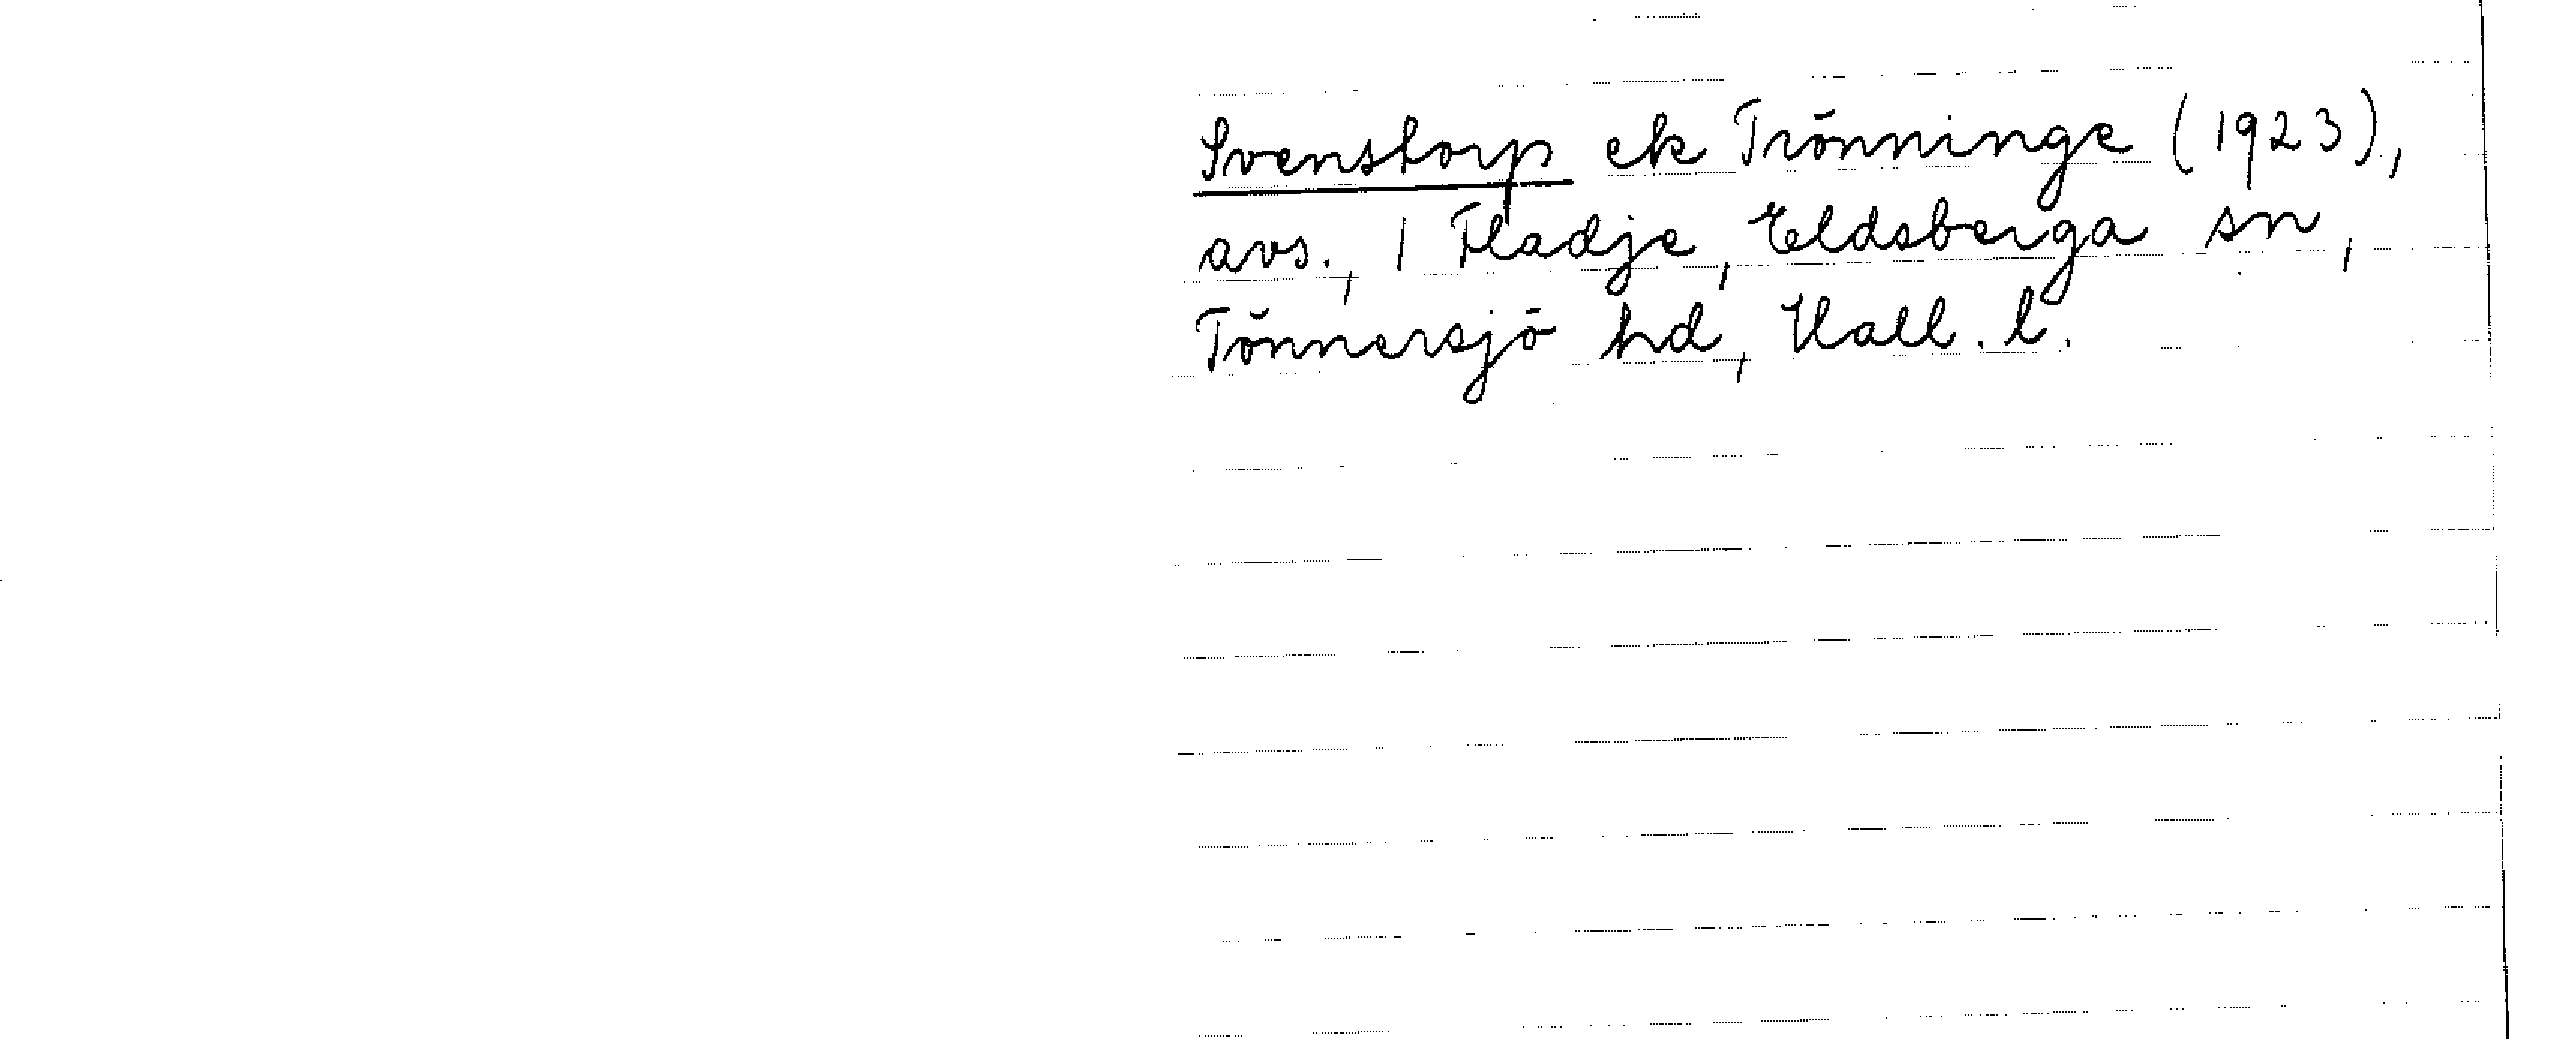 Svenstorp ek Trönninge (1923),
avs., 1 Fladje, Eldsberga sn,
Tönnersjö hd, Hall. l.